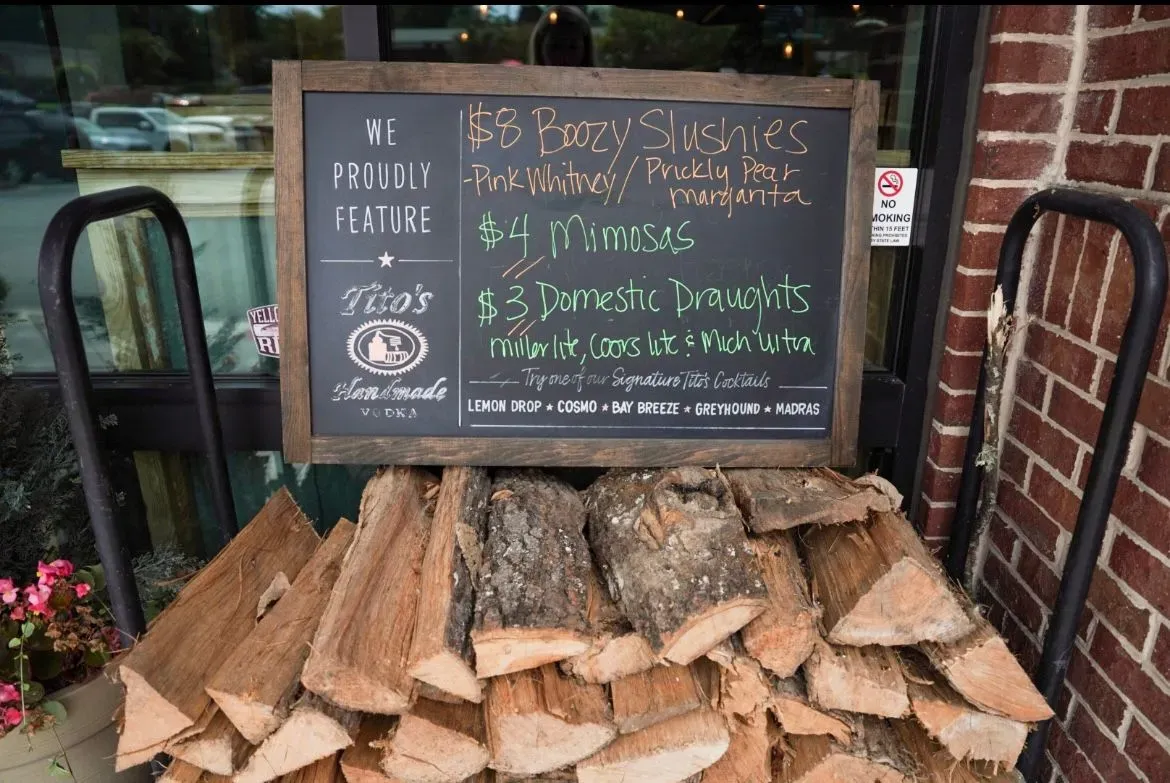 WE
PROUDLY
FEATURE
Tito's
Handmade
VODKA
$8 Boozy Slushies
-Pink Whitney/ Prickly Pear
margarita
$4 Mimosas
$3 Domestic Draughts
miller lite, Coors lite & Mich ultra
Try one of our Signature Tito's Cocktails
LEMON DROP ★ COSMO ★ BAY BREEZE ★ GREYHOUND ★ MADRAS
NO
MOKING
THIN 15 FEET
BY STATE LAW
YELL
RI